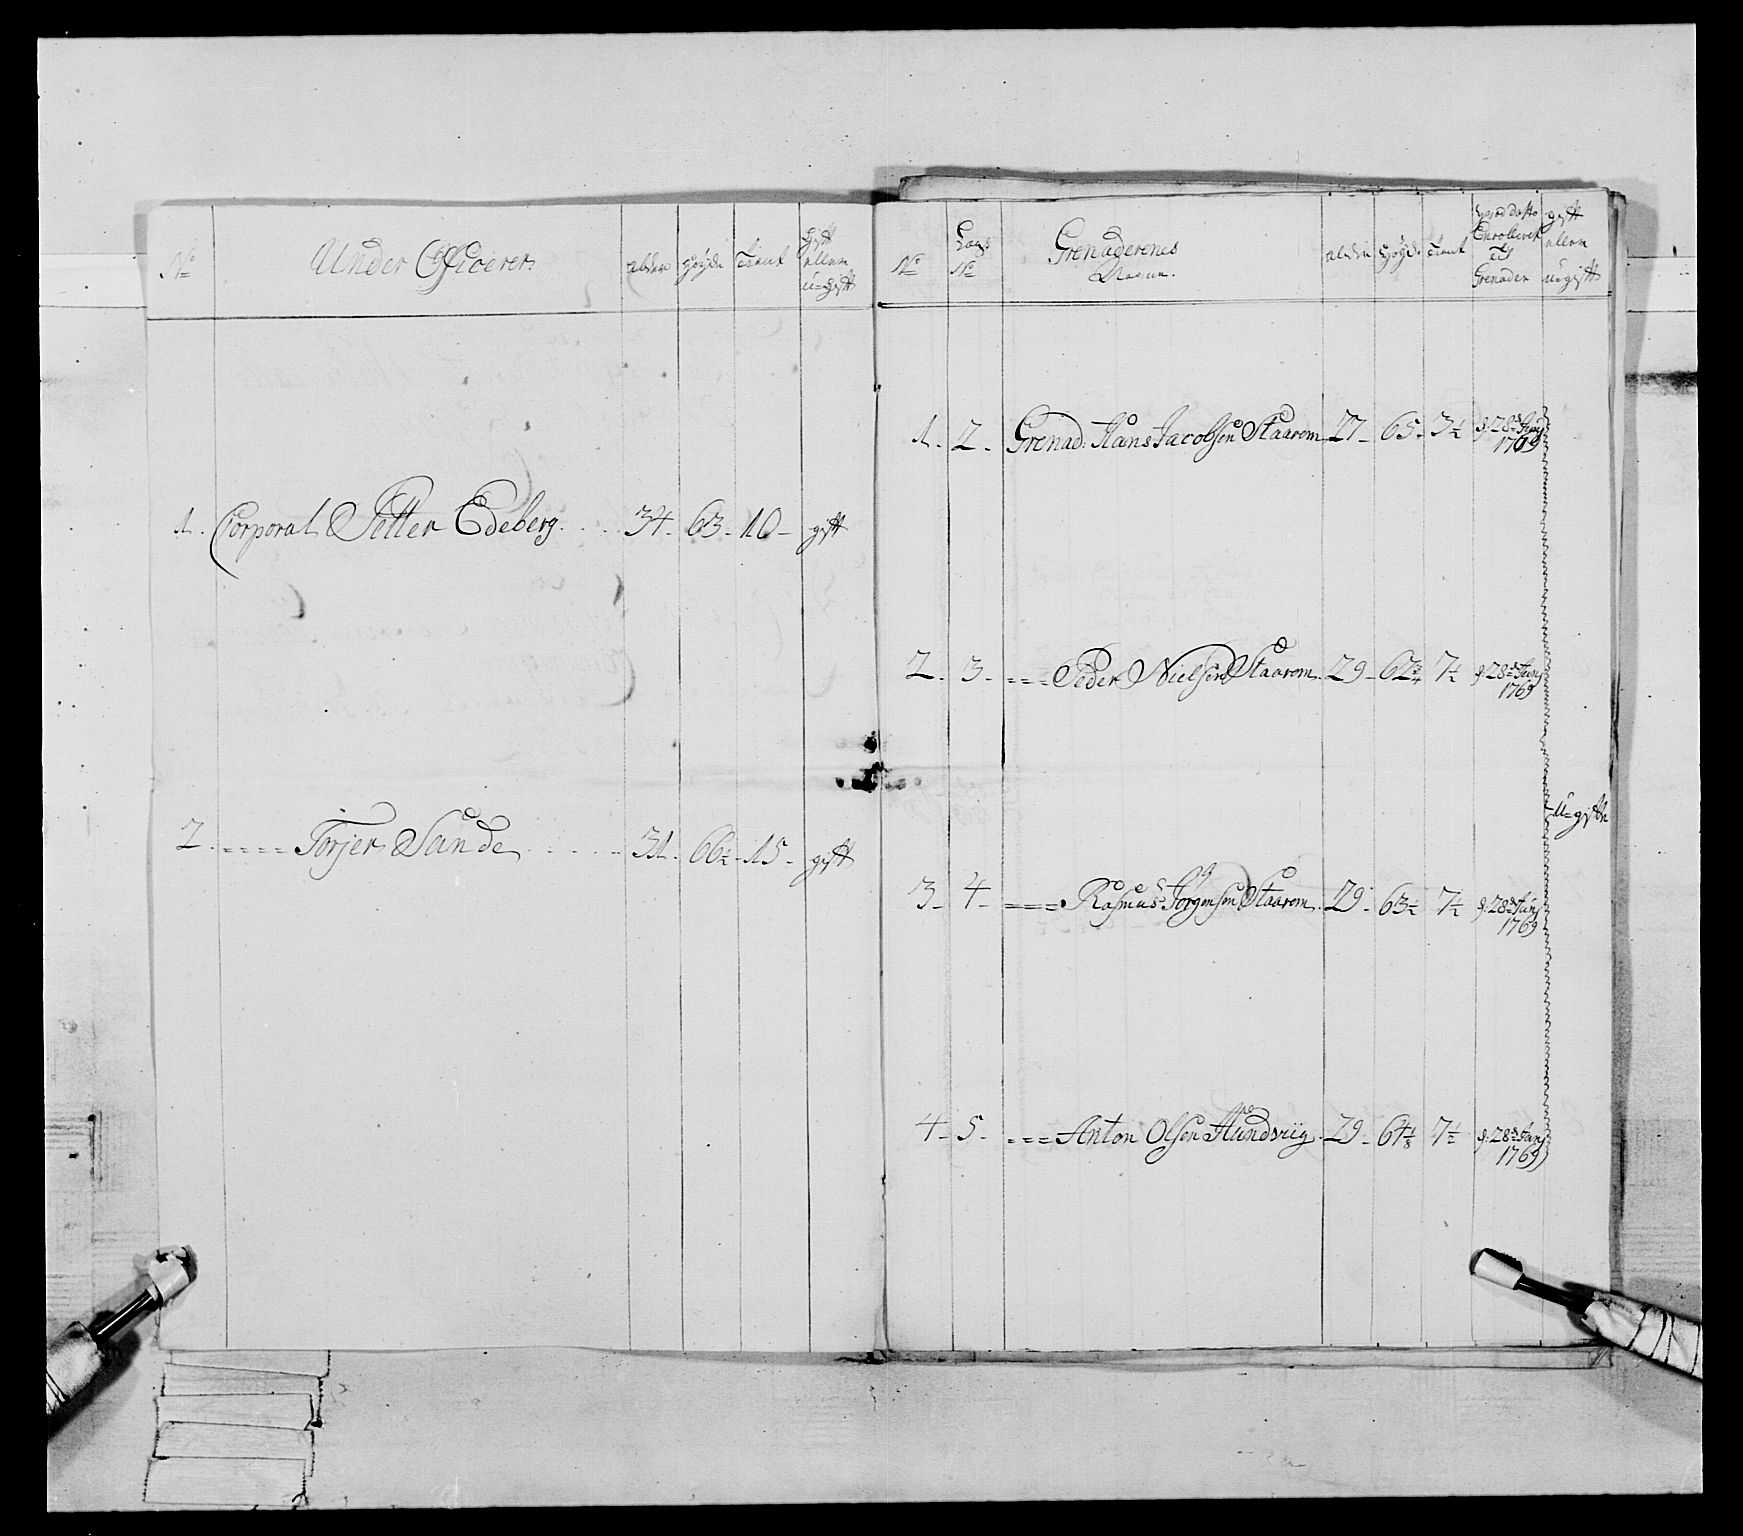 No
Under Officerer
alder
Høyde
Tient
Gift
eller
u=gift
1. Corporal Petter Edeberg. 34. 63. 10 gift
2. Torjer Sande 31. 66½ 15 gift
No
Laugs
No
Grenaderenes
Nafne.
alder
Høyde
Tient
Enrolleret
Til
Grenader
gift
eller
u=gift
1. 2. Grenad: Hans Jacobsen Staarem 27 65 3½ d: 28de Junj
1769
2. 3. Peder Nielsen Staarem 29 62¾ 7½ d: 28de Junj
1769
U=gifte
3. 4. Rasmus Jørgensen Staarem 29 63½ 7½ d: 28de Junj
1769
4. 5. Anton Olsen Hundsviig 29 64⅛ 7½ d: 28de Junj
1769